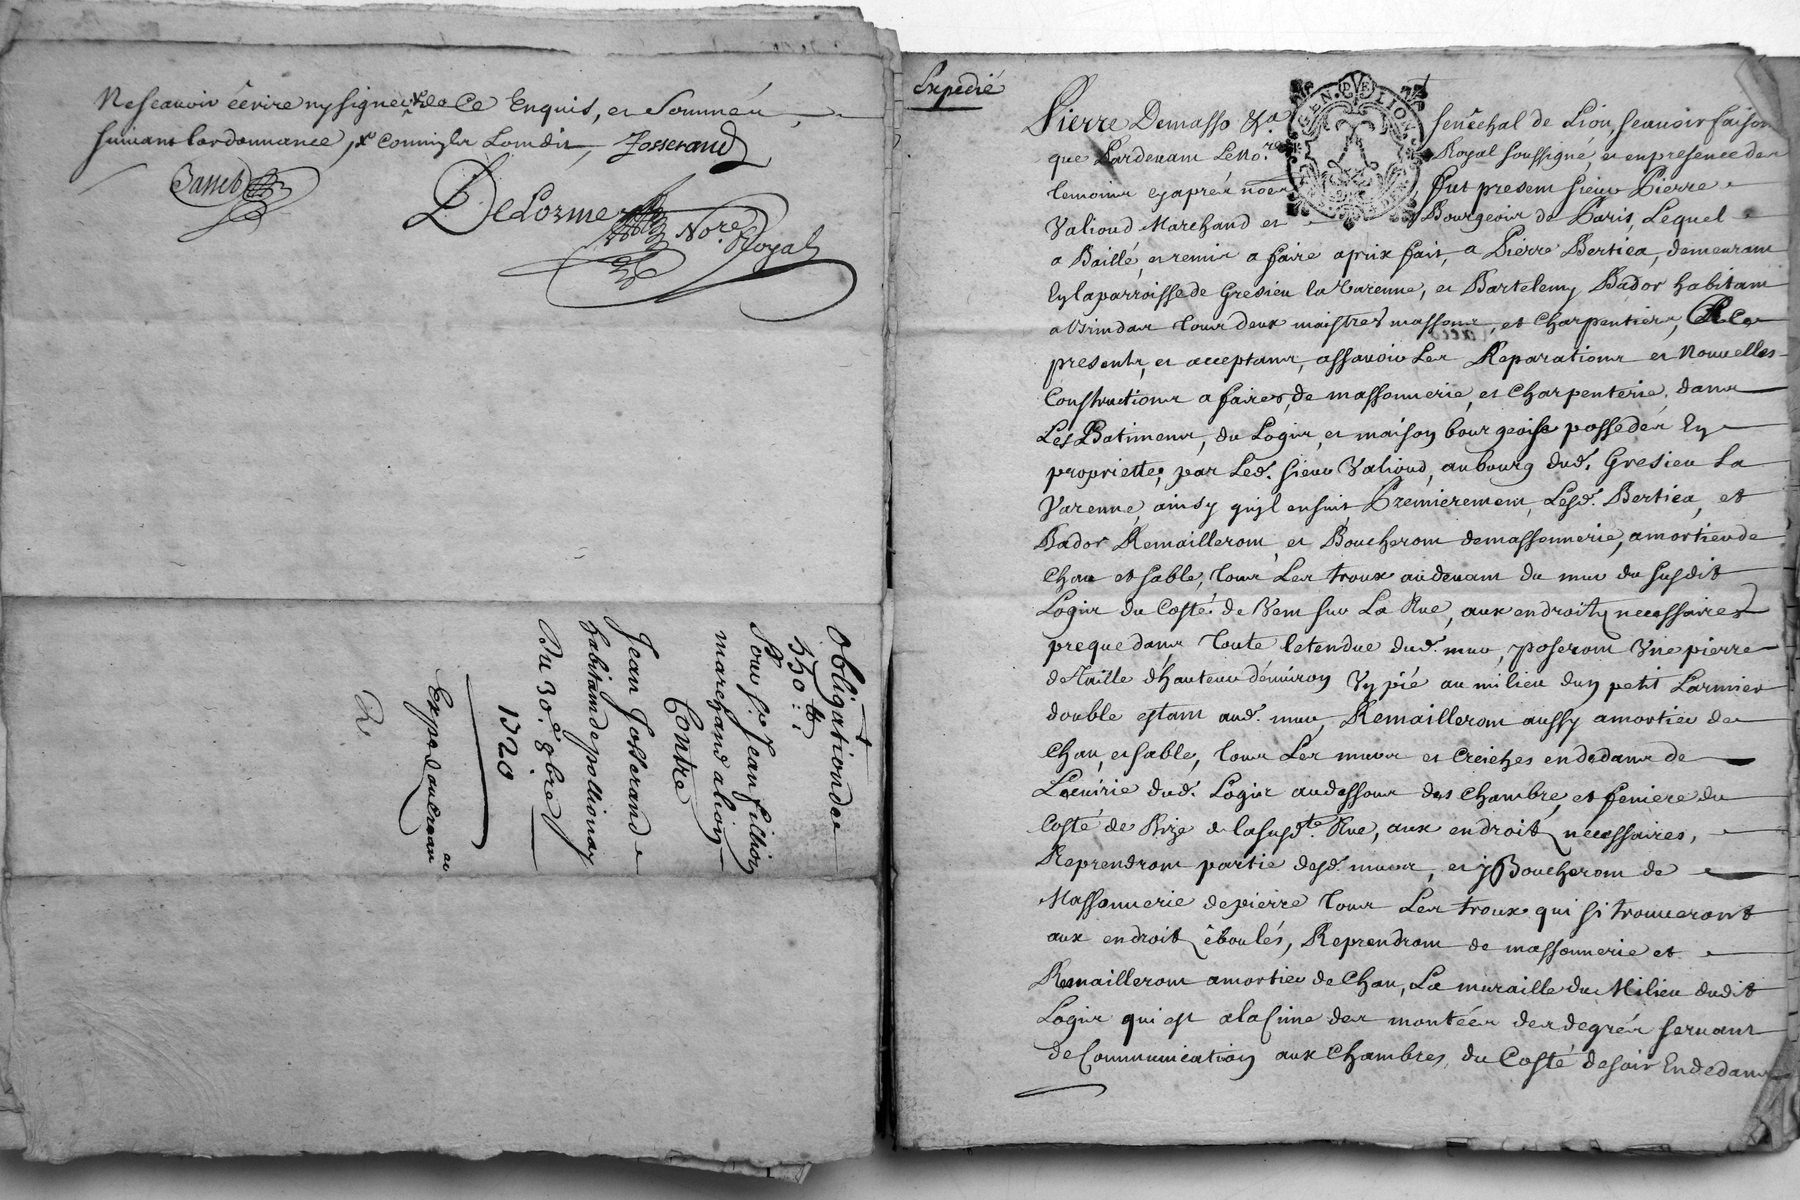 Ne scavoir écrire ny signer de ce Enquis, et Sommés
suivant lordonnance, Josserand
DeLorme No.re Royal
Obligation de
550 ₶
Pour Sr. Jean fillion
marchand a lion
Contre
Jean Josserand
habitant de pollionay
Du 30.e 9bre
1720
Expedié
GEN. DE LION
Pierre Demasso &a senéchal de Lion, scavoir faisons
que Pardevant Le No.re Royal soussigné et en presence des
temoins cy aprés nōes fut present sieur Pierre
Valioud Marchand et Bourgeois de Paris, Lequel
a Baillé, et remis a faire a prix fait, a Pierre Bertica, demeurant
En la parroisse de Gresieu la Varenne, et Bartelemy Bador habitant
a Brindas tous deux maistres massons, et charpentiers, Ice
presents, et acceptans, assavoir Les Reparations et Nouvelles
Constructions a faires, de massonnerie, et charpenterie, dans
Les Batimens, du Logis, et maison bourgeoise possedés En
proprietté, par Led. sieur Valioud, au bourg dud. Gresieu La
Varenne, ainsy quil ensuit, Premierement, Lesd. Bertica, et
Bador Remailleront, et Boucheront de massonnerie, a mortier de
chau et sable, tous Les troux au devant du mur du susdit
Logis du Costé de Vent sur La Rue, aux endroits necessaires
preque dans toute letendue dud. mur, poseront Vne pierre
de Taille dhauteur dénviron Vn pié au milieu dun petit Larmier
double estant aud. mur, Remailleront aussy a mortier de
Chau, et sable, tous Les murs et Creiches en dedans de
Lécuirie dud. Logis au dessous des chambre, et feniere du
Costé de Bize de la susd.te Rue, aux endroits necessaires,
Reprendront partie desd. murs, et y Boucheront de
Massonnerie de pierre tous Les troux qui si trouveront
aux endroits éboulés, Reprendront de massonnerie et
Remailleront a mortier de Chau, La muraille du Milieu dudit
Logis qui est a la Cime des montées des degrés servant
de Communication aux Chambres, du Costé de soir En dedans